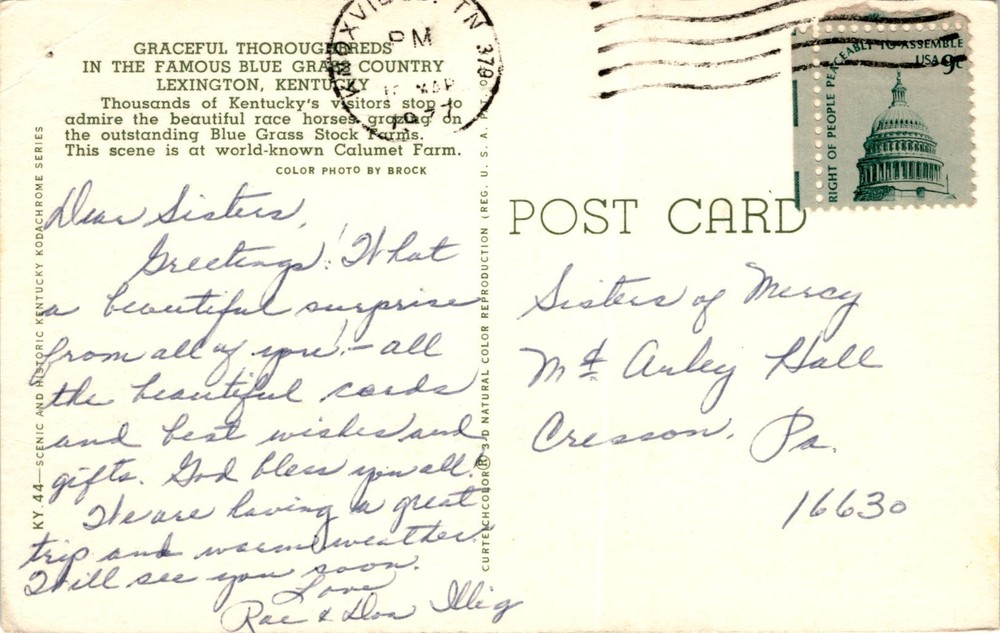 GRACEFUL THOROUGHBREDS
IN THE FAMOUS BLUE GRASS COUNTRY
LEXINGTON, KENTUCKY
Thousands of Kentucky's visitors stop to
admire the beautiful race horses grazing on
the outstanding Blue Grass Stock Farms.
This scene is at world-known Calumet Farm.
COLOR PHOTO BY BROCK
KY. 44—SCENIC AND HISTORIC KENTUCKY KODACHROME SERIES
Dear Sisters,
Greetings! What
a beautiful surprise
from all of you! - all
the beautiful cards
and best wishes and
gifts. God bless you all!
We are having a great
trip and warm weather.
Will see you soon.
Love
Rae & Don Illig
CURTEICHCOLOR® 3-D NATURAL COLOR REPRODUCTION (REG. U. S. A.
KNOXVILLE, TN 379
PM
MAR
1977
RIGHT OF PEOPLE PEACEABLY TO ASSEMBLE
USA 9c
POST CARD
Sisters of Mercy
Mt Hall
Cresson, Pa.
16630